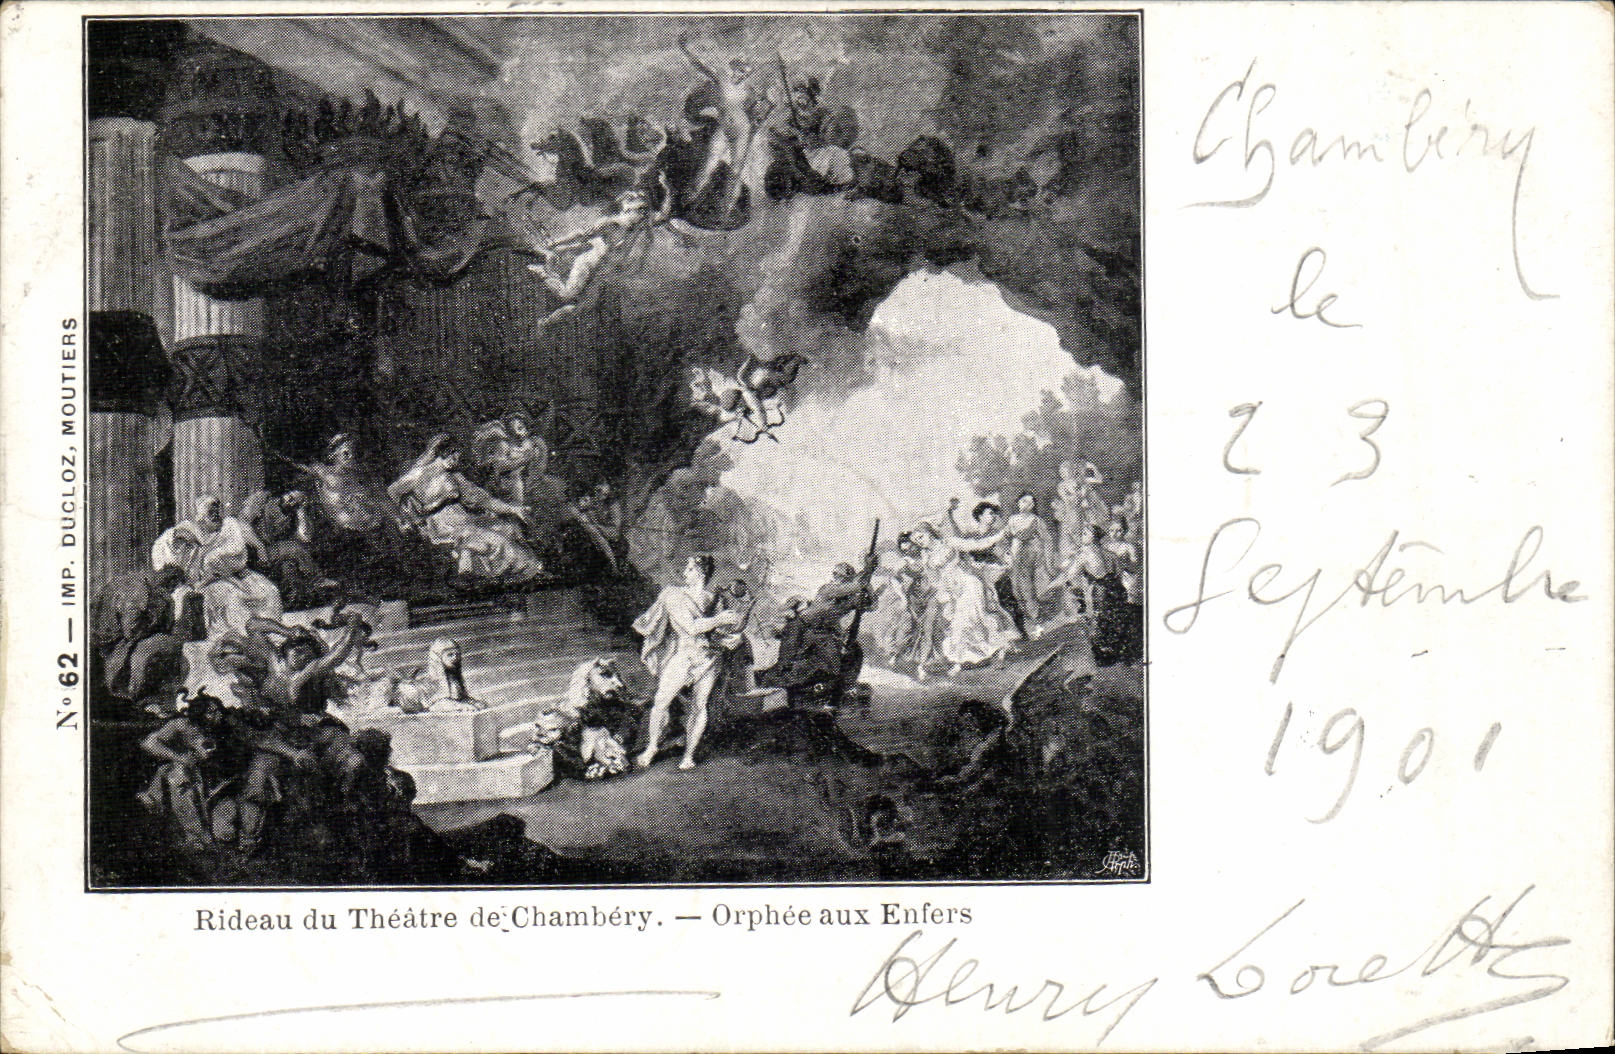 Nº 62 — IMP. DUCLOZ, MOUTIERS
Chambéry
le
23
Septembre
1901
Rideau du Théâtre de Chambéry. — Orphée aux Enfers
Henry